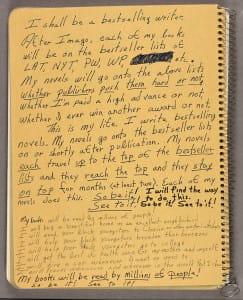 I shall be a bestselling writer.
After Imago, each of my books
will be on the bestseller lists of
LAT, NYT, PW, WP, etc.
My novels will go onto the above lists
whether publishers push them hard or not,
whether I'm paid a high advance or not,
whether I ever win another award or not.
This is my life. I write bestselling
novels. My novels go onto the bestseller lists
on or shortly after publication. My novels
each travel up to the top of the bestseller
lists and they reach the top and they stay
on top for months (at least two). Each of my
novels does this. So be it! I will find the way
See to it! to do this.
So be it! See to it!
My books will be read by millions of people!
I will buy a beautiful home in an excellent neighborhood
I will help poor black youngsters
I will help poor black youngsters
I will help poor black youngsters go to college
I will get the best of health care for my mother and myself
My books will be read by millions of people!
So be it! See to it!